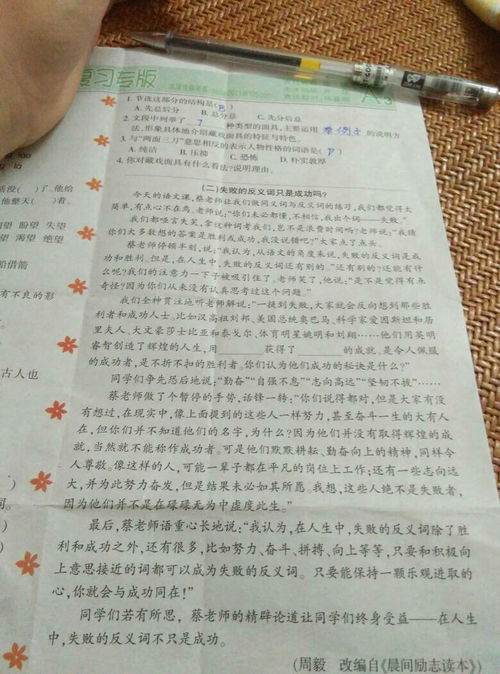 复习专版
1. 节选这部分的结构是( B )
A. 先总后分 B. 总分总 C. 先分后总
2. 文段中列举了 7 种类型的面具,主要运用 举例子 的说明方
法,形象具体地介绍藏戏面具的特征与特色。
3. 与“两面三刀”意思相反的表示人物性格的词语是( D )
A. 纯洁 B. 压抑 C. 恐怖 D. 朴实敦厚
4. 你对藏戏面具有什么看法?说明理由。
(二)失败的反义词只是成功吗?
今天的语文课,蔡老师让我们做同义词与反义词的练习,我们都觉得太
简单,有点心不在焉。老师说:“你们未必都懂,不相信,我出个词——失败。”
我们都哑言失笑,拿这种词考我们,岂不是浪费时间吗?老师说:“我猜
你们大多数想的答案是胜利或成功,我没说错吧?”大家点了点头。
蔡老师停顿半刻,说:“我认为,从语文的角度来说,失败的反义词是成
功和胜利。但是,在人生中,失败的反义词还有别的。”还有别的?还能有什
么呢?我们的注意力一下子被吸引住了。老师笑了,他说:“是不是觉得有点
奇怪?因为你们从来没有认真思考过这个问题。”
我们全神贯注地听老师解说:“一提到失败,大家就会反向想到那些胜
利者和成功人士。比如汉高祖刘邦、美国总统奥巴马、科学家爱因斯坦和居
里夫人、大文豪莎士比亚和泰戈尔、体育明星姚明和刘翔……他们用英明
睿智创造了辉煌的人生,用 获得了 的成就,是令人佩服
的成功者,是不折不扣的胜利者。你们认为他们成功的秘诀是什么?”
同学们争先恐后地说:“勤奋”“自强不息”“志向高远”“坚韧不拔”……
蔡老师做了个暂停的手势,话锋一转:“你们说得都对,但是大家有没
有想过,在现实中,像上面提到的这些人一样努力,甚至奋斗一生的大有人
在,但你们并不知道他们的名字,为什么?因为他们并没有取得辉煌的成
就,当然就不能称作成功者。可是他们默默耕耘、勤奋向上的精神,同样令
人尊敬。像这样的人,可能一辈子都在平凡的岗位上工作;还有一些志向远
大,并为此努力奋发,但是结果未必如其所愿。我想,这些人绝不是失败者,
因为他们并不是在碌碌无为中虚度此生。”
最后,蔡老师语重心长地说:“我认为,在人生中,失败的反义词除了胜
利和成功之外,还有很多,比如努力、奋斗、拼搏、向上等等,只要和积极向
上意思接近的词都可以成为失败的反义词。只要能保持一颗乐观进取的
心,你就会与成功同在!”
同学们若有所思,蔡老师的精辟论道让同学们终身受益——在人生
中,失败的反义词不只是成功。
(周毅 改编自《晨间励志读本》)
活没( )了。他给
他整天( )着。
望 盼望 失望
望 渴望 绝望
船借箭
有不良的影
古人也